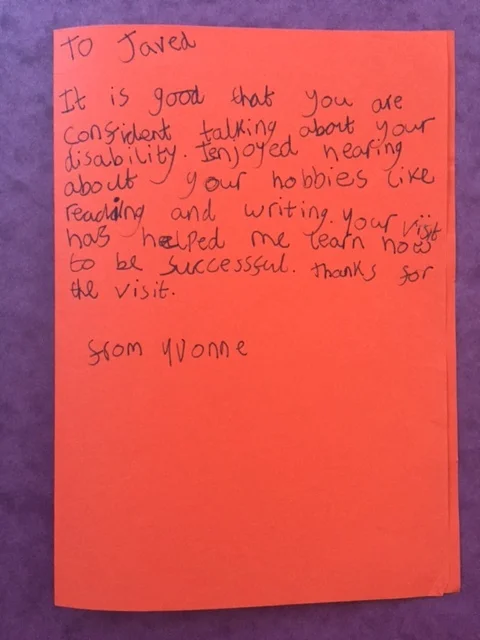 To Javed
It is good that you are
confident talking about your
disability. I enjoyed hearing
about your hobbies like
reading and writing. your visit
has helped me learn how
to be successful. thanks for
the visit.
from Yvonne